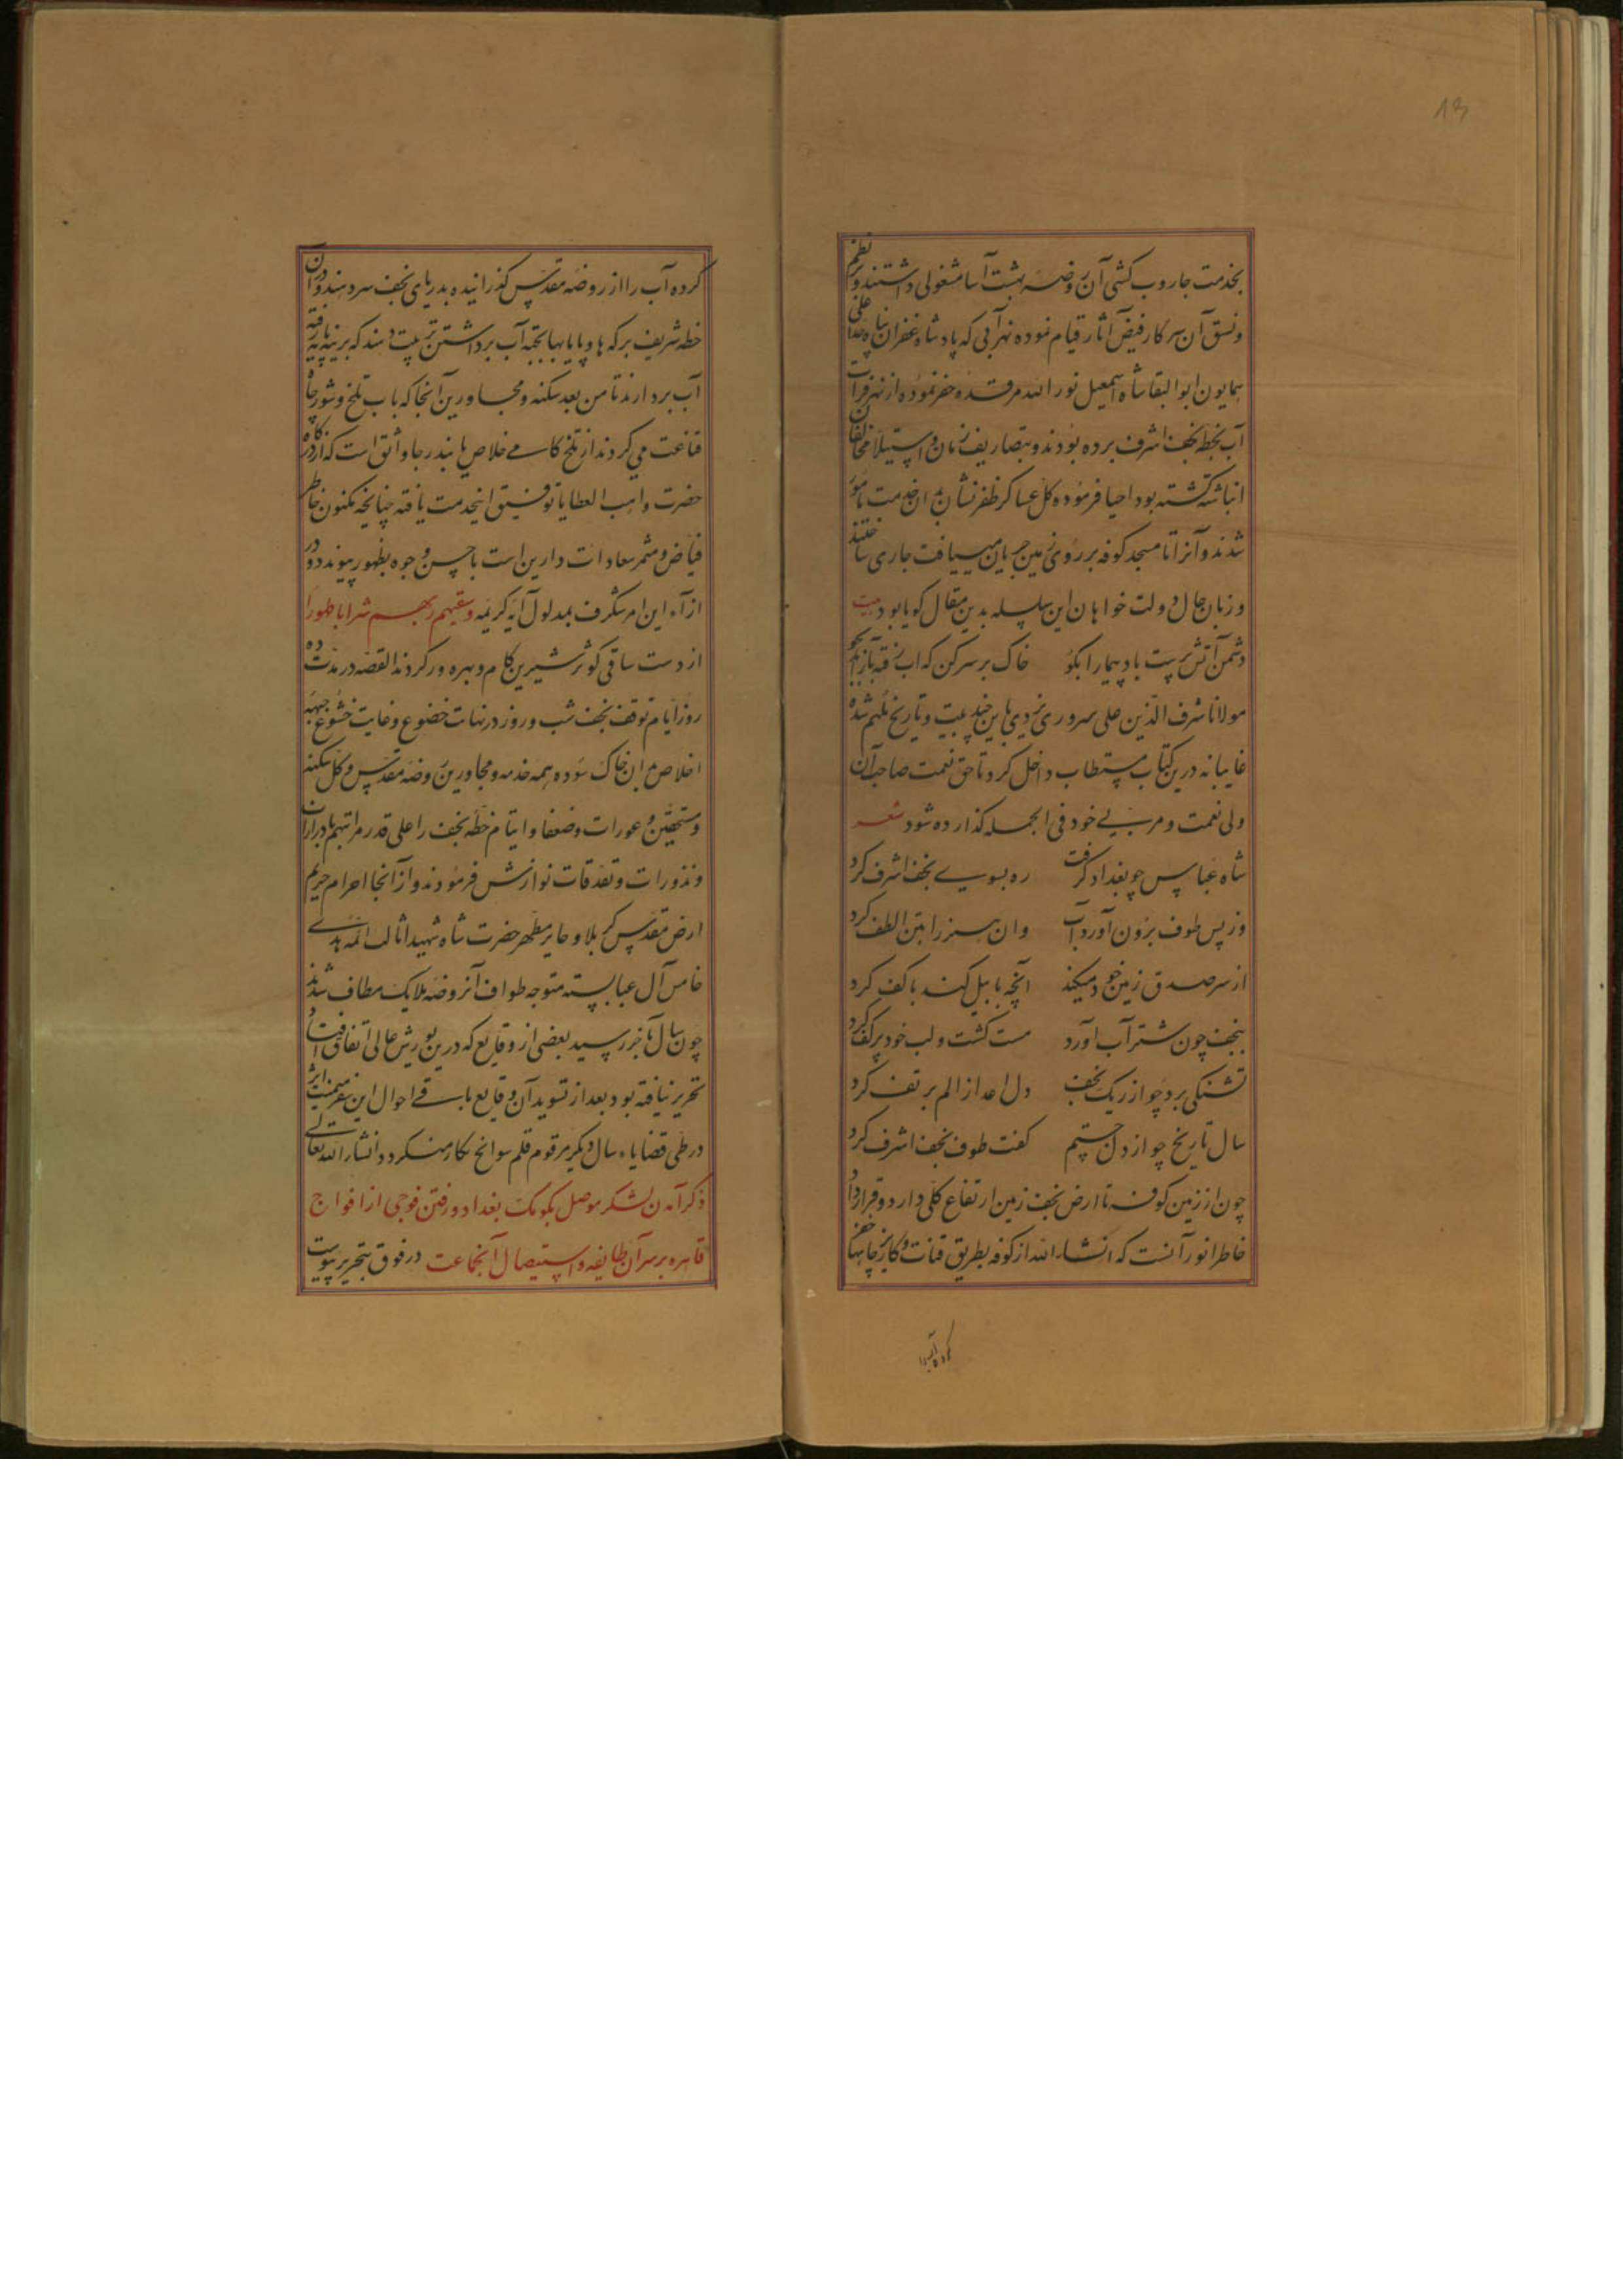 13
بخدمت جاروب کشی آن روضه بهشت آسا مشغولی داشتند و بر نظم
و نسق آن سرکار فیض آثار قیام نموده نهر آبی که پادشاه غفران پناه علی
همایون ابوالبقا شاه اسمعیل نور الله مرقده حفر نموده از نهر فرات
آب بخطه نجف اشرف برده بودند و بتصاریف زمان و استیلاء مخالفان
انباشته کشته بود احیا فرموده کل عساکر ظفر نشان بدان خدمت مامور
شدند و آنرا تا مسجد کوفه بر روی زمین جریان مییافت جاری ساختند
و زبان حال دولت خواهان این سلسله بدین مقال کویا بود بیت
دشمن آتش پرست باد پیما را بکو خاک بر سر کن که اب رفته باز آمد بجو
مولانا شرف الدین علی سروری یزدی باین چند بیت و تاریخ ملهم شده
غایبانه درین کتاب مستطاب داخل کرد تا حق نعمت صاحب آن
ولی نعمت و مربی خود فی الجمله کذارده شود شعر
شاه عباس چو بغداد کرفت ره بسوی نجف اشرف کرد
وز پس طوف برون آورد آب وان هنر را بتن الطف کرد
از سر صدق زمین خود میکند آنچه با بیل کند با کف کرد
بنجف چون شتر آب آورد مست کشت و لب خود پر کف کرد
تشنکی برد چو از ریک نجف دل اعدا ز الم بر تف کرد
سال تاریخ چو از دل جستیم کفت طوف نجف اشرف کرد
چون از زمین کوفه تا ارض نجف زمین ارتفاع کلی دارد و قرارداد
خاطر انور آنست که انشاء الله از کوفه بطریق قنات و کاریز چاهها حفر
کرده آب را
کرده آب را از روضه مقدس کذرانیده بدریای نجف سر دهند و در آن
خطه شریف برکه ها و پایابها بجهة آب برداشتن ترتیب دهند که بزینه پایه رفته
آب بردارند تا من بعد سکنه و مجاورین آنجا که باب تلخ و شور چاه
قناعت می کردند از تلخ کامی خلاص یابند رجا واثق است که از درکاه
حضرت واهب العطایا توفیق اینخدمت یافته چنانچه مکنون خاطر
فیاض و مثمر سعادات دارین است باحسن وجوه بظهور پیوندد و در
ازاء این امر شکرف بمدلول آیه کریمه وسقیهم ربهم شرابا طهورا
از دست ساقی کوثر شیرین کام و بهره ور کردند القصه در مدت ده
روز ایام توقف نجف شب و روز در نهایت خضوع و غایت خشوع جبهه
اخلاص بدان خاک سوده همه خدمه و مجاورین روضه مقدس و کل سکنه
و مستحقین و عورات و ضعفا و ایتام خطه نجف را علی قدر مراتبهم بادرارات
و نذورات و تصدقات نوازش فرمودند و از آنجا احرام حریم
ارض مقدس کربلا و حایر مطهر حضرت شاه شهیدا ثالث ائمه هدی
خامس آل عبا بسته متوجه طواف آنروضه ملایک مطاف شدند
چون سال بآخر رسید بعضی از وقایع که درین یورش عالی اتفاق افتاد
تحریر نیافته بود بعد از تسوید آن وقایع باقی احوال این سفر میمنت اثر
در طی قضایاء سال دیکر مرقوم قلم سوانح نکار میکردد انشاء الله تعالی
ذکر آمدن لشکر موصل بکومک بغداد و رفتن فوجی از افواج
قاهره بر سر آن طایفه و استیصال آنجماعت در فوق بتحریر پیوست